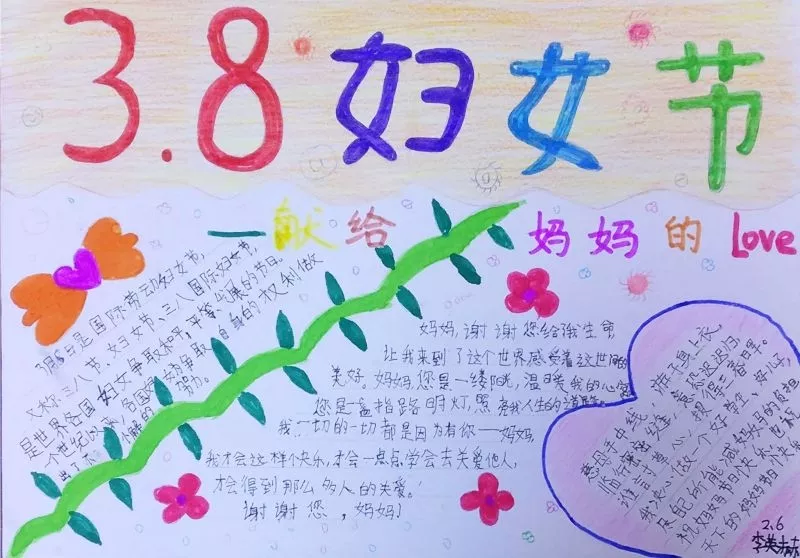 3.8妇女节
一献给妈妈的love
3月8日是国际劳动妇女节,
又称三八节、妇女节、三八国际妇女节,
是世界各国妇女争取和平、平等、发展的节日。
一个世纪以来,各国妇女为争取自身的权利做
出了不懈的努力。
妈妈,谢谢您给我生命
让我来到了这个世界感受着这世间的
美好。妈妈,您是一缕阳光,温暖我的心窝
您是一盏指路明灯,照亮我人生的道路。
我一切的一切都是因为有你——妈妈,
我才会这样个快乐,才会一点点学会去关爱他人,
才会得到那么多人的关爱。
谢谢您,妈妈!
慈母手中线,游子身上衣,
临行密密缝,意恐迟迟归。
谁言寸草心,报得三春晖。
我决心做一个好学生、好
祝妈妈节日快乐,也祝
天下的妈妈节日快乐
2.6